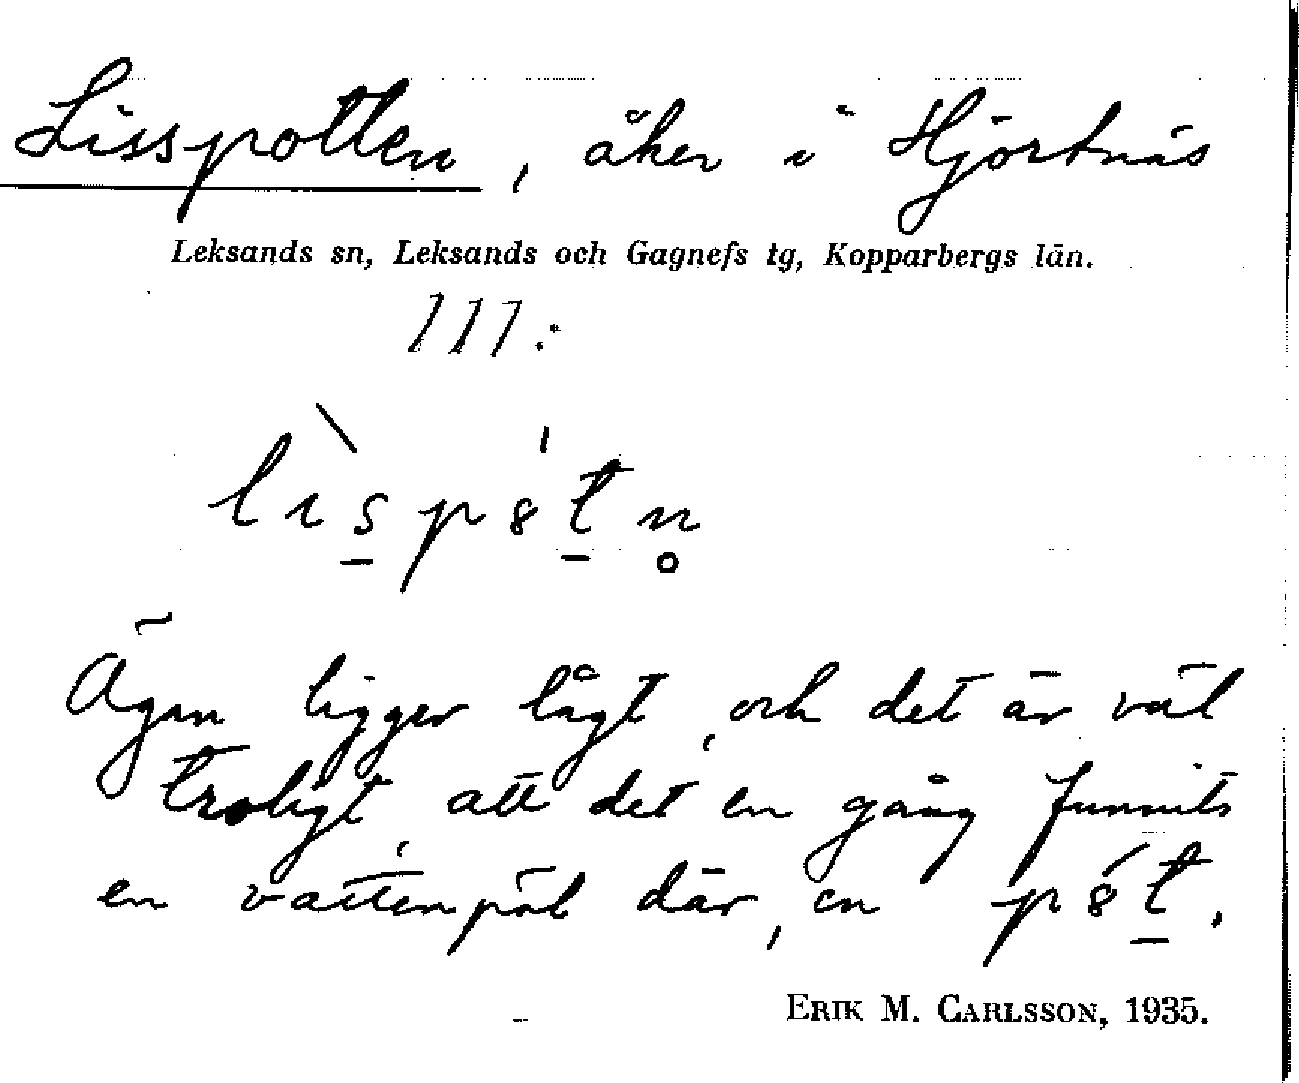 Lisspotten, åker i Hjortnäs
Leksands sn, Leksands och Gagnefs tg, Kopparbergs län.
111:
lìspȣtn̥
Ägan ligger lågt, och det är väl
troligt, att det en gång funnits
en vattenpöl där, en pȣ́t.
ERIK M. CARLSSON, 1935.